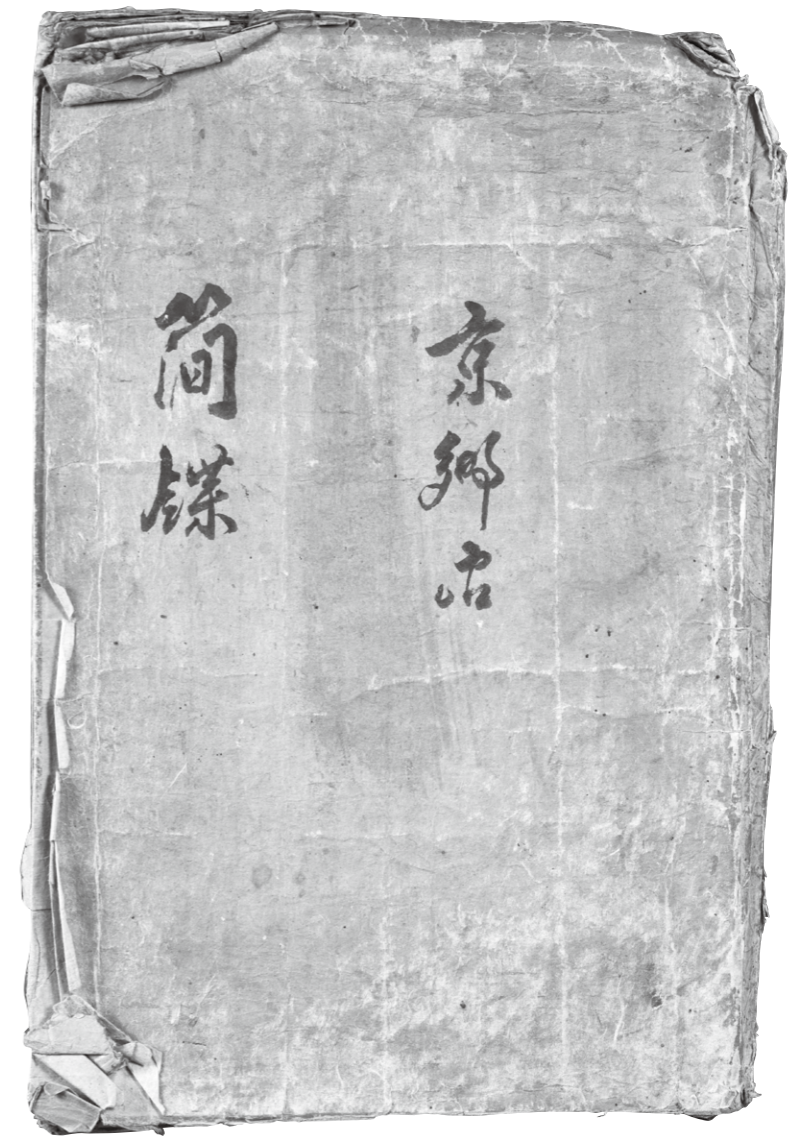 京鄉
簡牒